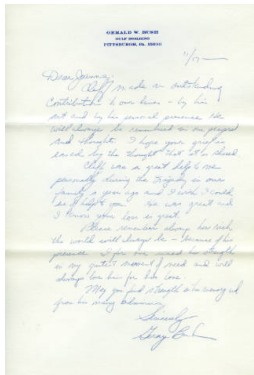 GERALD W. BUSH
PITTSBURGH, PA.
11/17
Dear Joanna:
Cliff made an outstanding
contribution to our lives - by his
art and by his personal presence. He
will always be remembered in our prayers
and thoughts. I hope your grief is
eased by the thought that it is shared.
Cliff was a great help to me
personally during the tragedy in our
family a year ago and I wish I could
be of help to you. He was great and
I know your loss is great.
Please remember always how rich
the world will always be - because of his
presence. I for one used his strength
in my greatest moment of need and will
always love him for his love.
May you find strength in his memory and
from his many
Sincerely